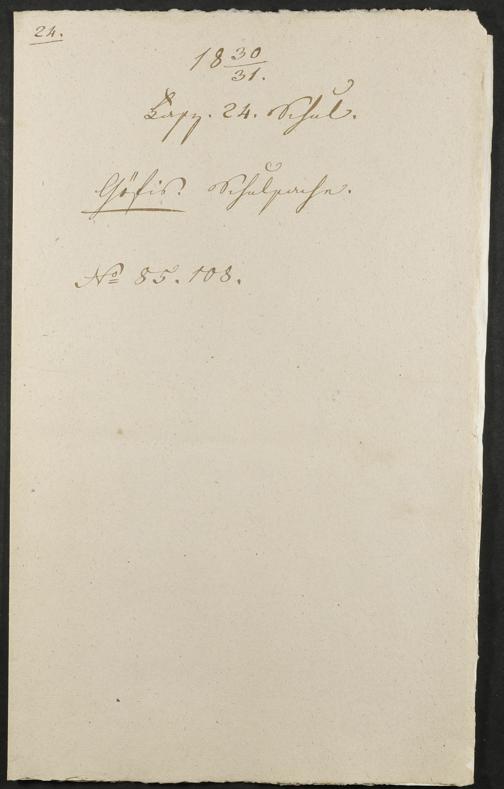 24.
18 30/31.
Fasz. 24. Schul.
Göfis. Schulsache.
No 85. 108.